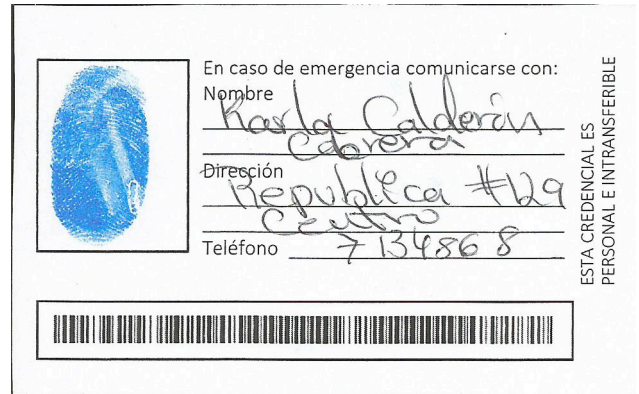 En caso de emergencia comunicarse con:
Nombre
Karla Calderón
Cabrera
Dirección
Republica #129
Centro
Teléfono 7134868
ESTA CREDENCIAL ES
PERSONAL E INTRANSFERIBLE